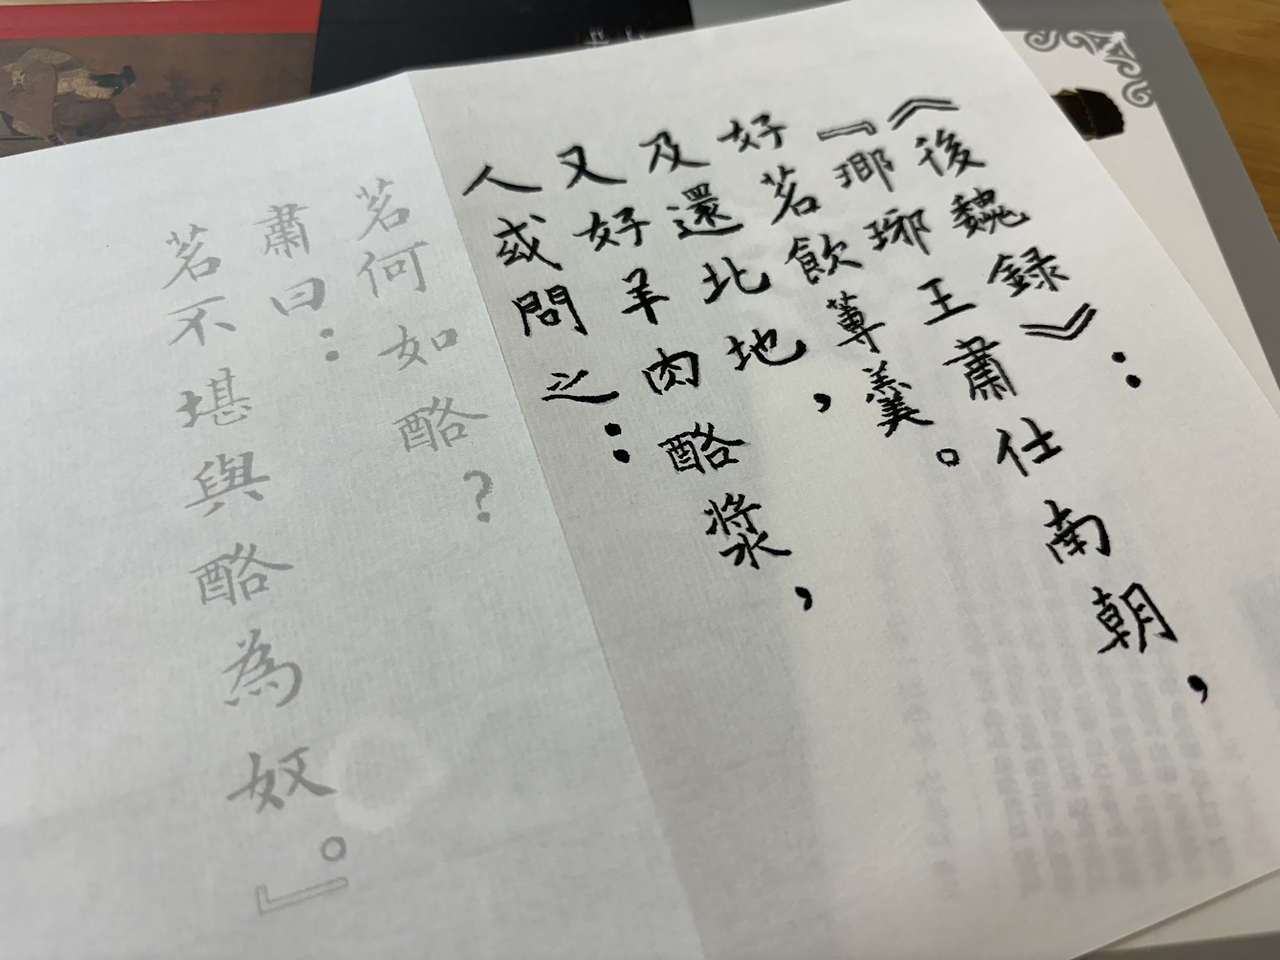 《後魏録》：
『瑯琊王肅仕南朝，
好茗飲蓴羹。
及還北地，
又好羊肉酪漿，
人或問之：
茗何如酪？
肅曰：
茗不堪與酪為奴。』